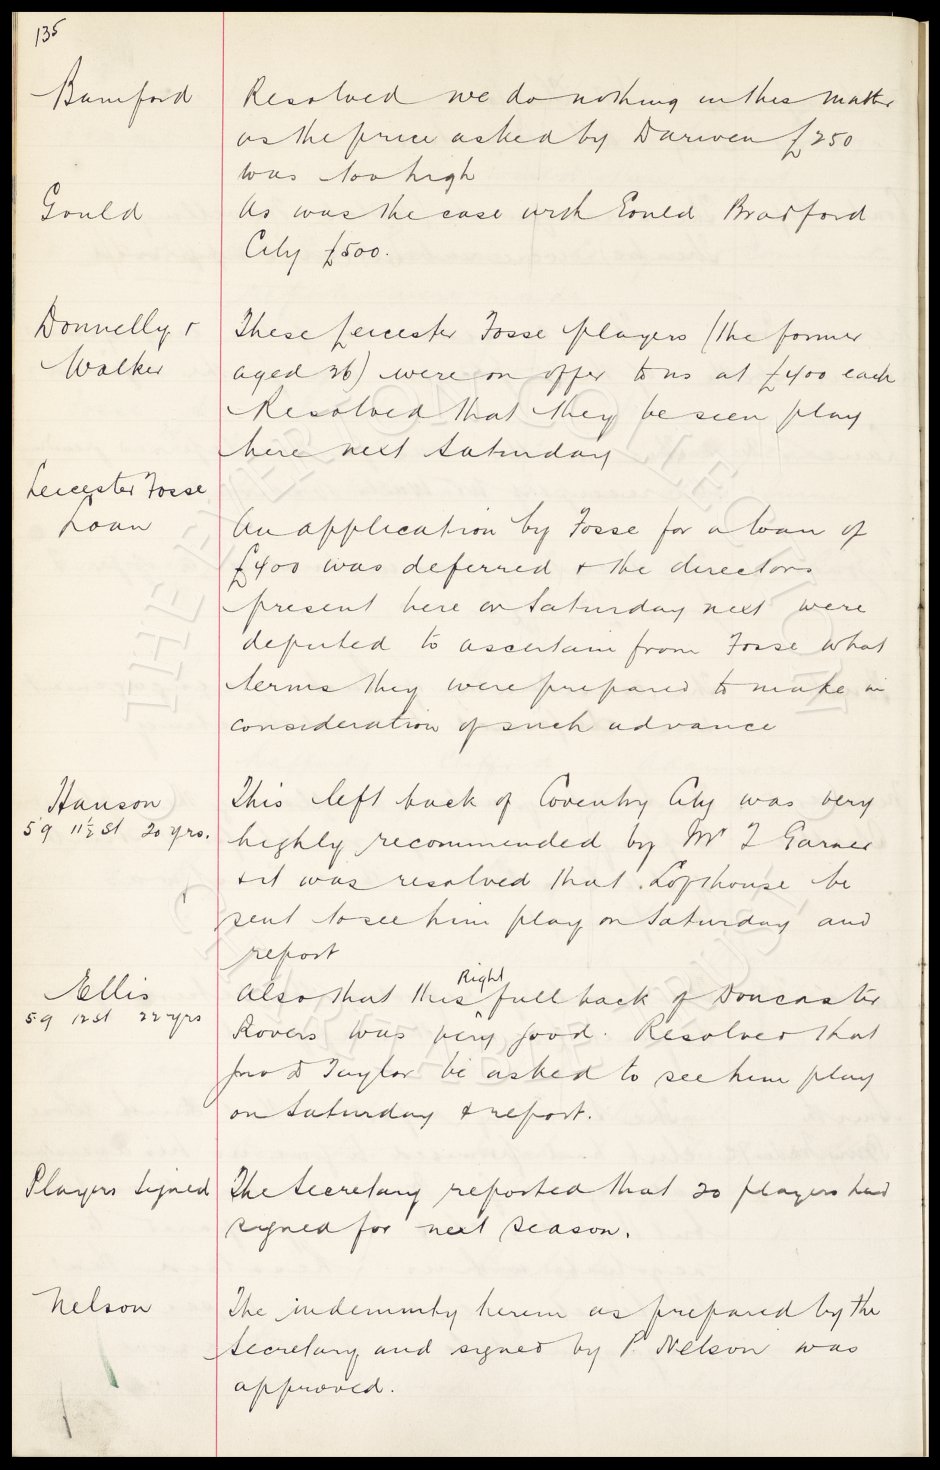 135
Bamford
Resolved we do nothing in this matter
as the price asked by Darwen £250
was too high
Gould
As was the case with Gould Bradford
City £500.
Donnelly &
Walker
These Leicester Fosse players (the former
aged 26) were on offer to us at £400 each
Resolved that they be seen play
here next Saturday
Leicester Fosse
Loan
An application by Fosse for a loan of
£400 was deferred & the directors
present here on Saturday next were
deputed to ascertain from Fosse what
terms they were prepared to make in
consideration of such advance
Hanson
5'9 11½ St 20 yrs.
This left back of Coventry City was very
highly recommended by Mr T Garner
& it was resolved that Lofthouse be
sent to see him play on Saturday and
report
Ellis
5 9 12 st 22 yrs
Also that this Right full back of Doncaster
Rovers was very good. Resolved that
Jno D Taylor be asked to see him play
on Saturday & report.
Players signed
The Secretary reported that 20 players had
signed for next season.
Nelson
The indemnity herein as prepared by the
Secretary and signed by P. Nelson was
approved.
THE EVERTON COLLECTION